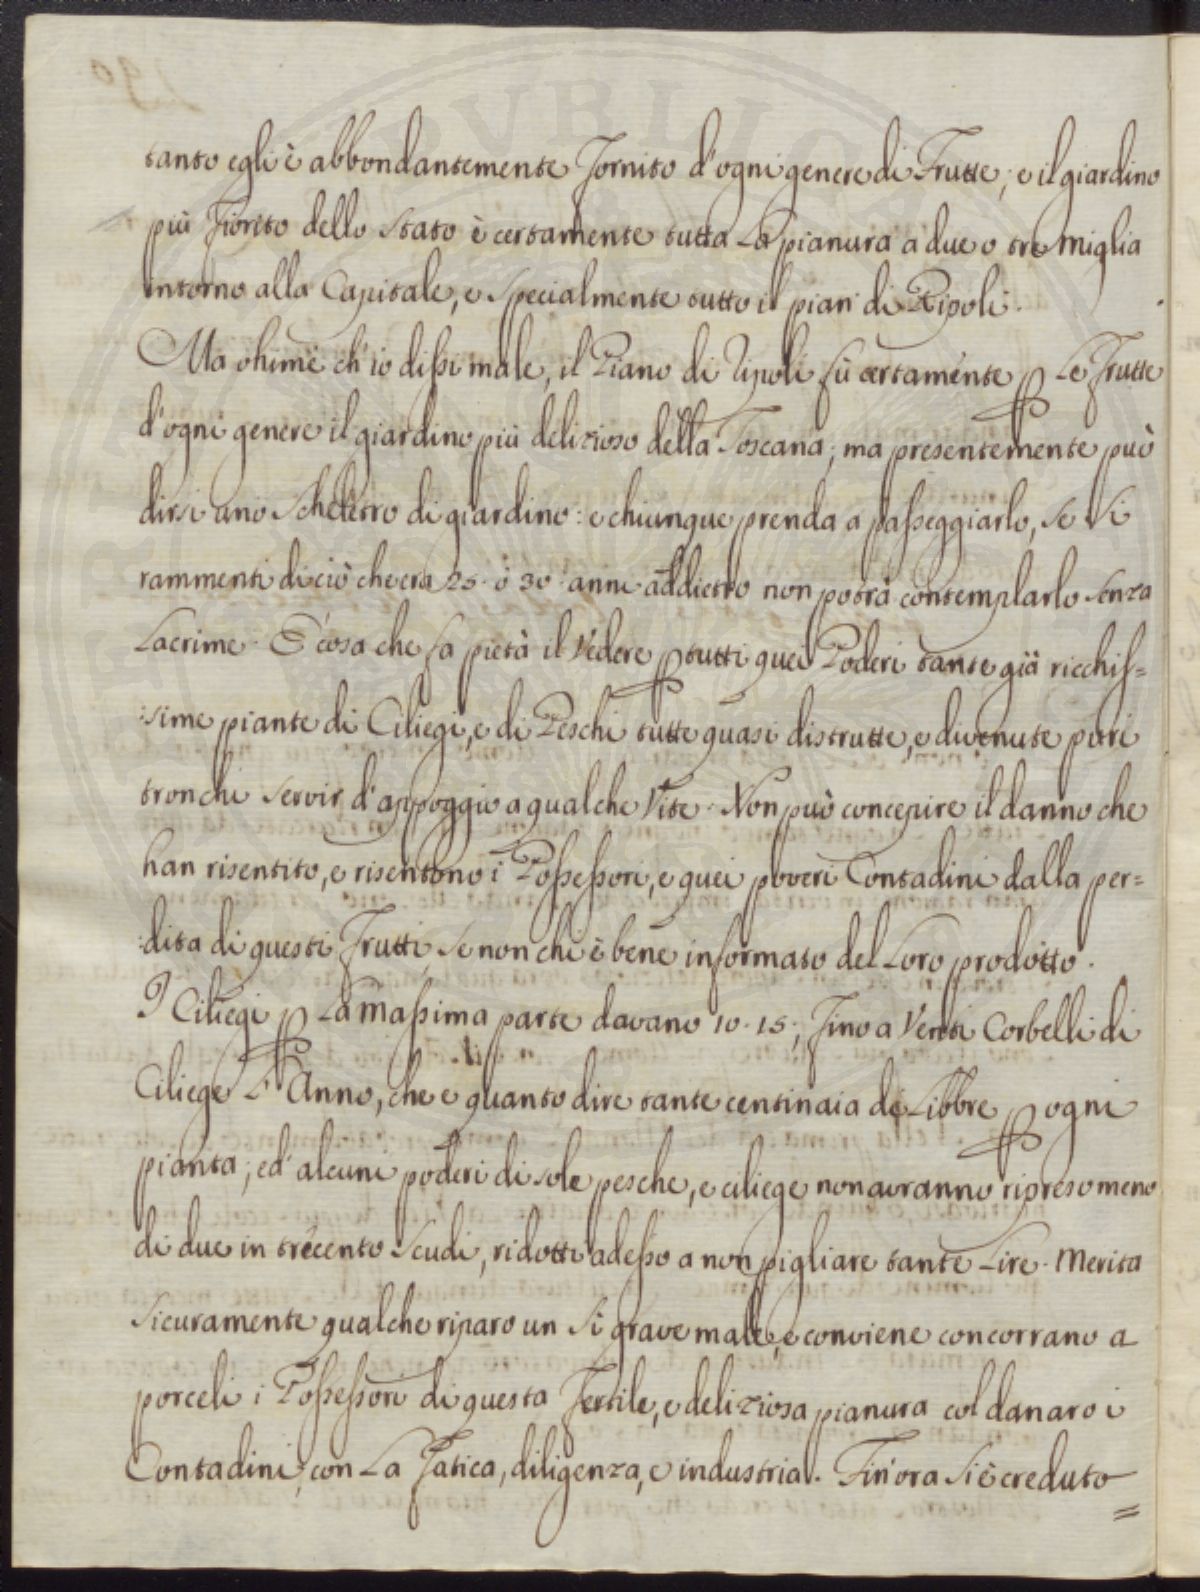 tanto egli è abbondantemente fornito d'ogni genere di Frutte; e il giardino
più fiorito dello Stato è certamente tutta La pianura a due o tre miglia
intorno alla Capitale, e specialmente tutto il pian di Ripoli.
Ma ohimè ch'io dissi male, il Piano di Ripoli fù certamente ꝑ Le Frutte
d'ogni genere il giardino più delizioso della Toscana; ma presentemente può
dirsi uno Scheletro di giardino: e chiunque prenda a passeggiarlo, se si
rammenti di ciò che era 25. ò 30. anni addietro non potrà contemplarlo senza
Lacrime. È cosa che fa pietà il Vedere ꝑ tutti quei Poderi tante già ricchis=
:sime piante di Ciliegi, e di Peschi tutte quasi distrutte, e divenute puri
tronchi servir d'appoggio a qualche Vite. Non può concepire il danno che
han risentito, e risentono i Possessori, e quei poveri Contadini dalla per=
:dita di questi Frutti, se non chi è bene informato del Loro prodotto.
I Ciliegi ꝑ La massima parte davano 10. 15., fino a Venti Corbelli di
Ciliege L'Anno, che e quanto dire tante centinaia di Libbre ꝑ ogni
pianta; ed alcuni poderi di sole pesche, e ciliege non avranno ripreso meno
di due in trecento Scudi, ridotti adesso a non pigliare tante Lire. Merita
sicuramente qualche riparo un sì grave male, e conviene concorrano a
porceli i Possessori di questa fertile, e deliziosa pianura col danaro i
Contadini con La fatica, diligenza, e industria. Fin'ora si è creduto
=
PVBLICA